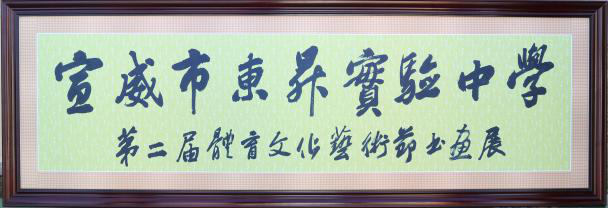 宣威市東昇實驗中學
第二届體育文化藝術節书畫展